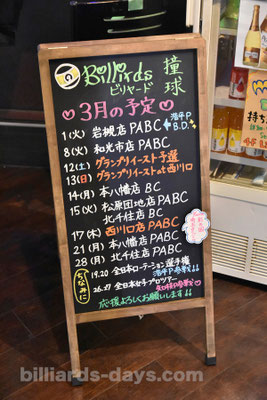 Billirds 撞球
ビリヤード
♡3月の予定♡
1(火) 岩槻店 PABC
浩平P
B.D.
8(火) 和光市店 PABC
12(土) グランプリイースト予選
13(日) グランプリイーストat西川口
14(月) 本八幡店 BC
15(火) 松原団地店 PABC
北千住店 BC
17(木) 西川口店 PABC
21(月) 本八幡店 PABC
28(月) 北千住店 PABC
ちなみに
19.20 全日本ローテーション選手権
26.27 全日本女子プロツアー
応援よろしくお願いします
billiards-days.com